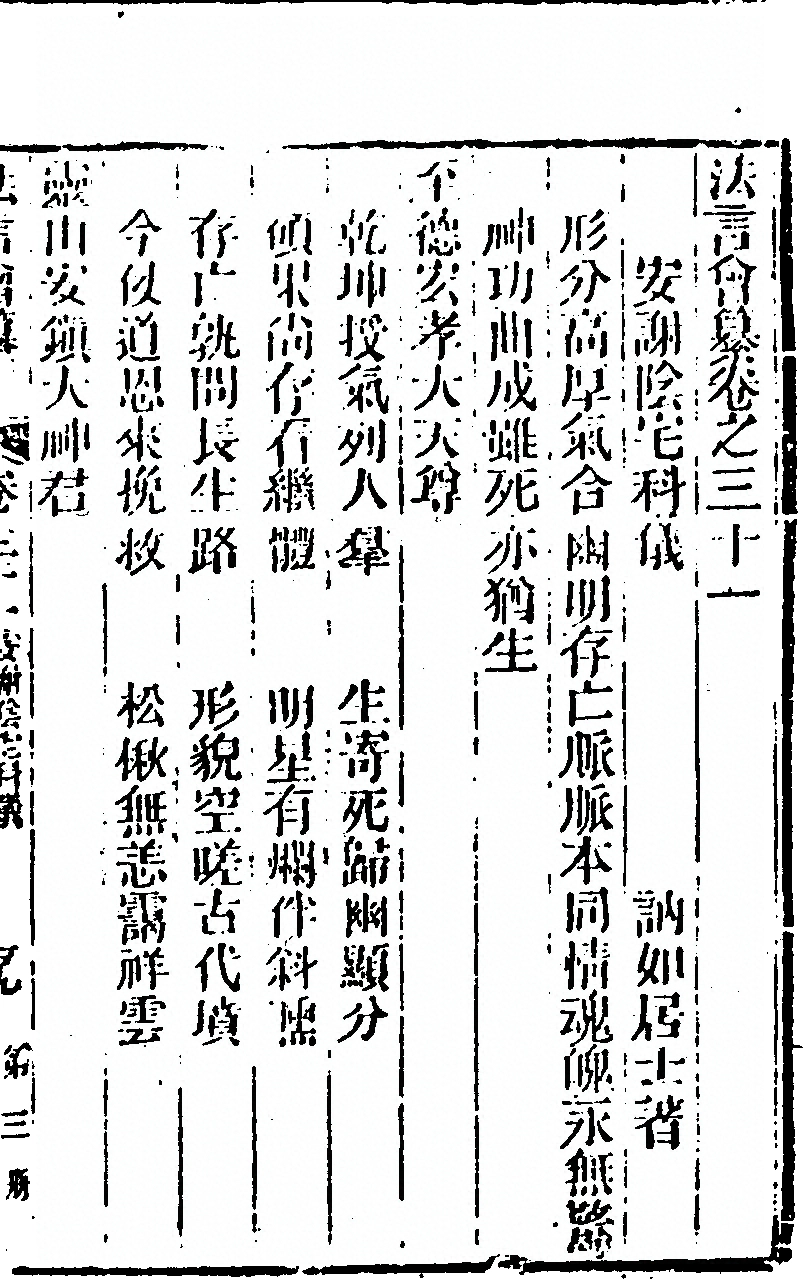 法言會纂卷之三十一
安謝陰宅科儀 訥如居士著
形分高厚氣合幽明存亡脈脈本同情魂魄永無驚
神功曲成雖死亦猶生
至德宏孝大天尊
乾坤授氣列人羣 生寄死歸幽顯分
碩果尚存看繼體 明星有爛伴斜曛
存亡孰問長生路 形貌空嗟古代墳
今仗道恩來挽救 松楸無恙靄祥雲
靈山安鎮大神君
法言會纂 卷三十一 安謝陰宅科儀 第三